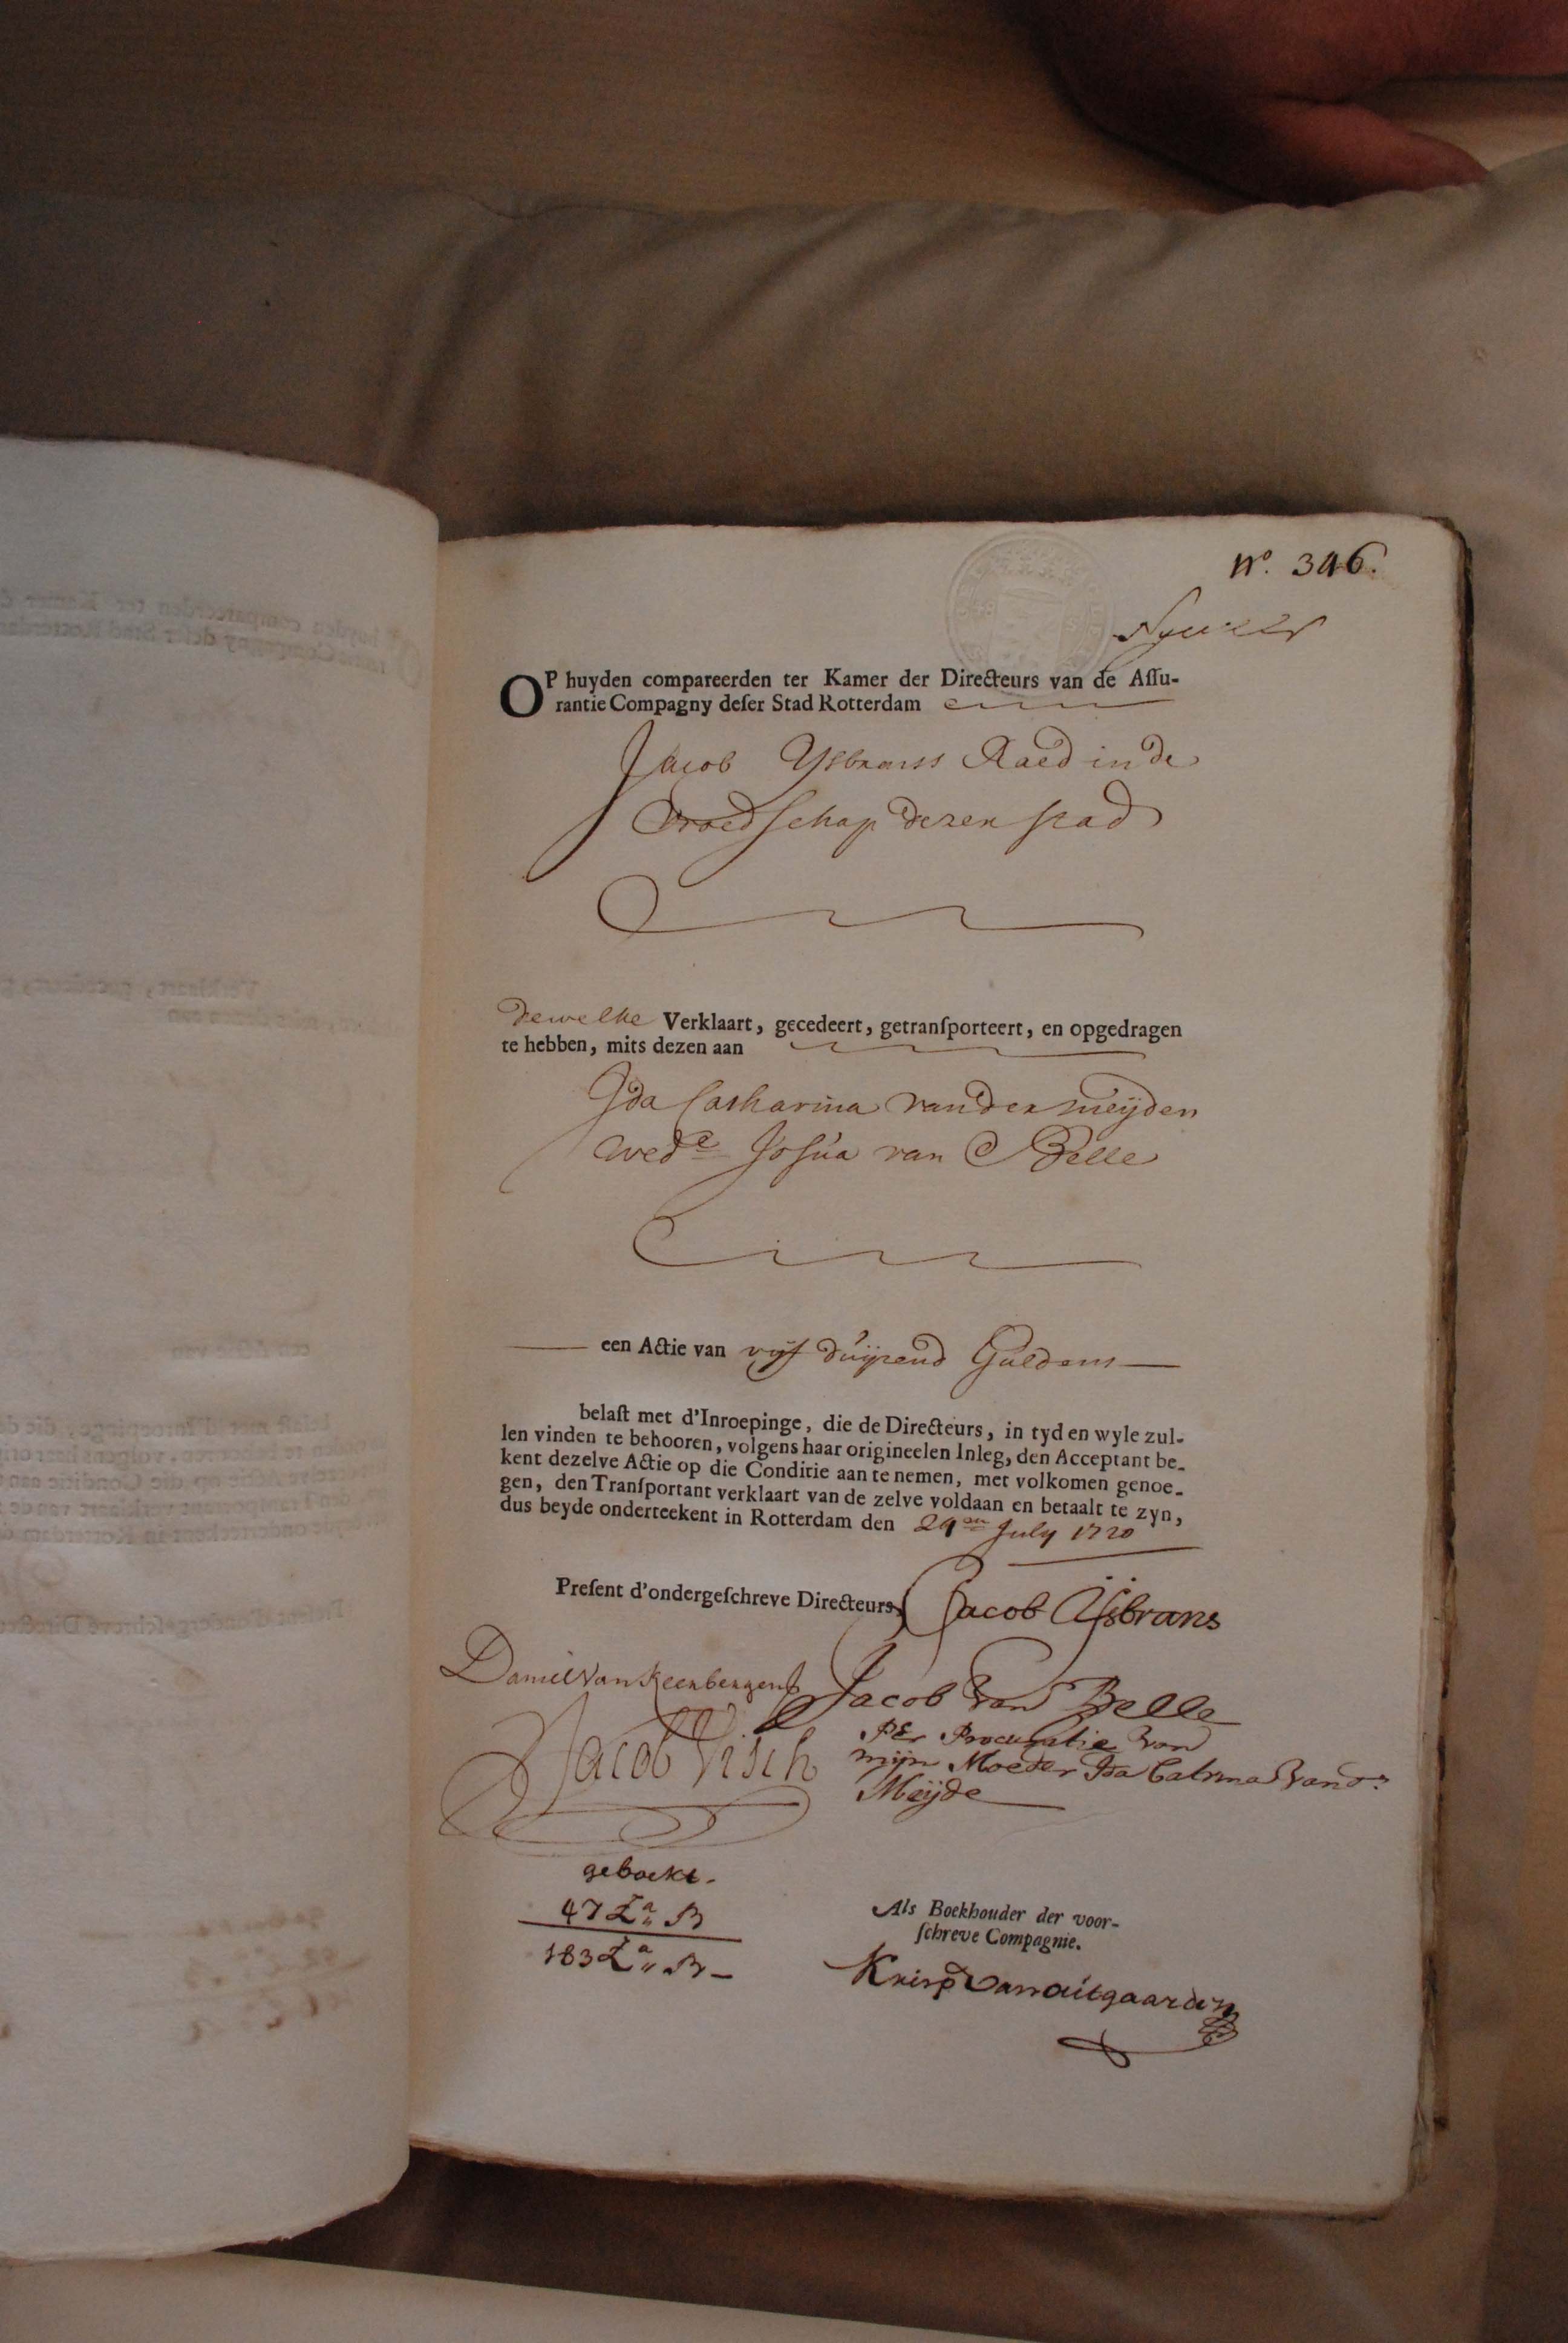 N.º 346.
OP huyden compareerden ter Kamer der Directeurs van de Assu-
rantie Compagny deser Stad Rotterdam
Jacob Ysbrans Raed in de
Vroedschap dezer stad
dewelke Verklaart, gecedeert, getransporteert, en opgedragen
te hebben, mits dezen aan
Ida Catharina vander meijden
wed.e Josúa van Belle
een Actie van vijf duijzend Guldens
belast met d'Inroepinge, die de Directeurs, in tyd en wyle zul-
len vinden te behooren, volgens haar origineelen Inleg, den Acceptant be-
kent dezelve Actie op die Conditie aan te nemen, met volkomen genoe-
gen, den Transportant verklaart van de zelve voldaan en betaalt te zyn,
dus beyde onderteekent in Rotterdam den 29en July 1720
Present d'ondergeschreve Directeurs,
Jacob Ysbrans
Daniel van Keerbergen
Jacob Van Belle
Jacob Visch
Per Procuratie Van
mijn Moeder Ida Catrina Vand.r
Meijde
geboekt.
47 L.a B
183 L.a B
Als Boekhouder der voor-
schreve Compagnie.
Krisp van uitgaarden